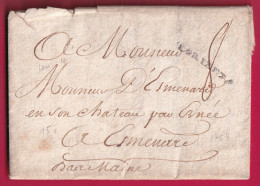 A Monsieur
LORIENT
8
Monsieur D'Esmenard
en son chateau par Ernée
A Esmenard
Bas Maine